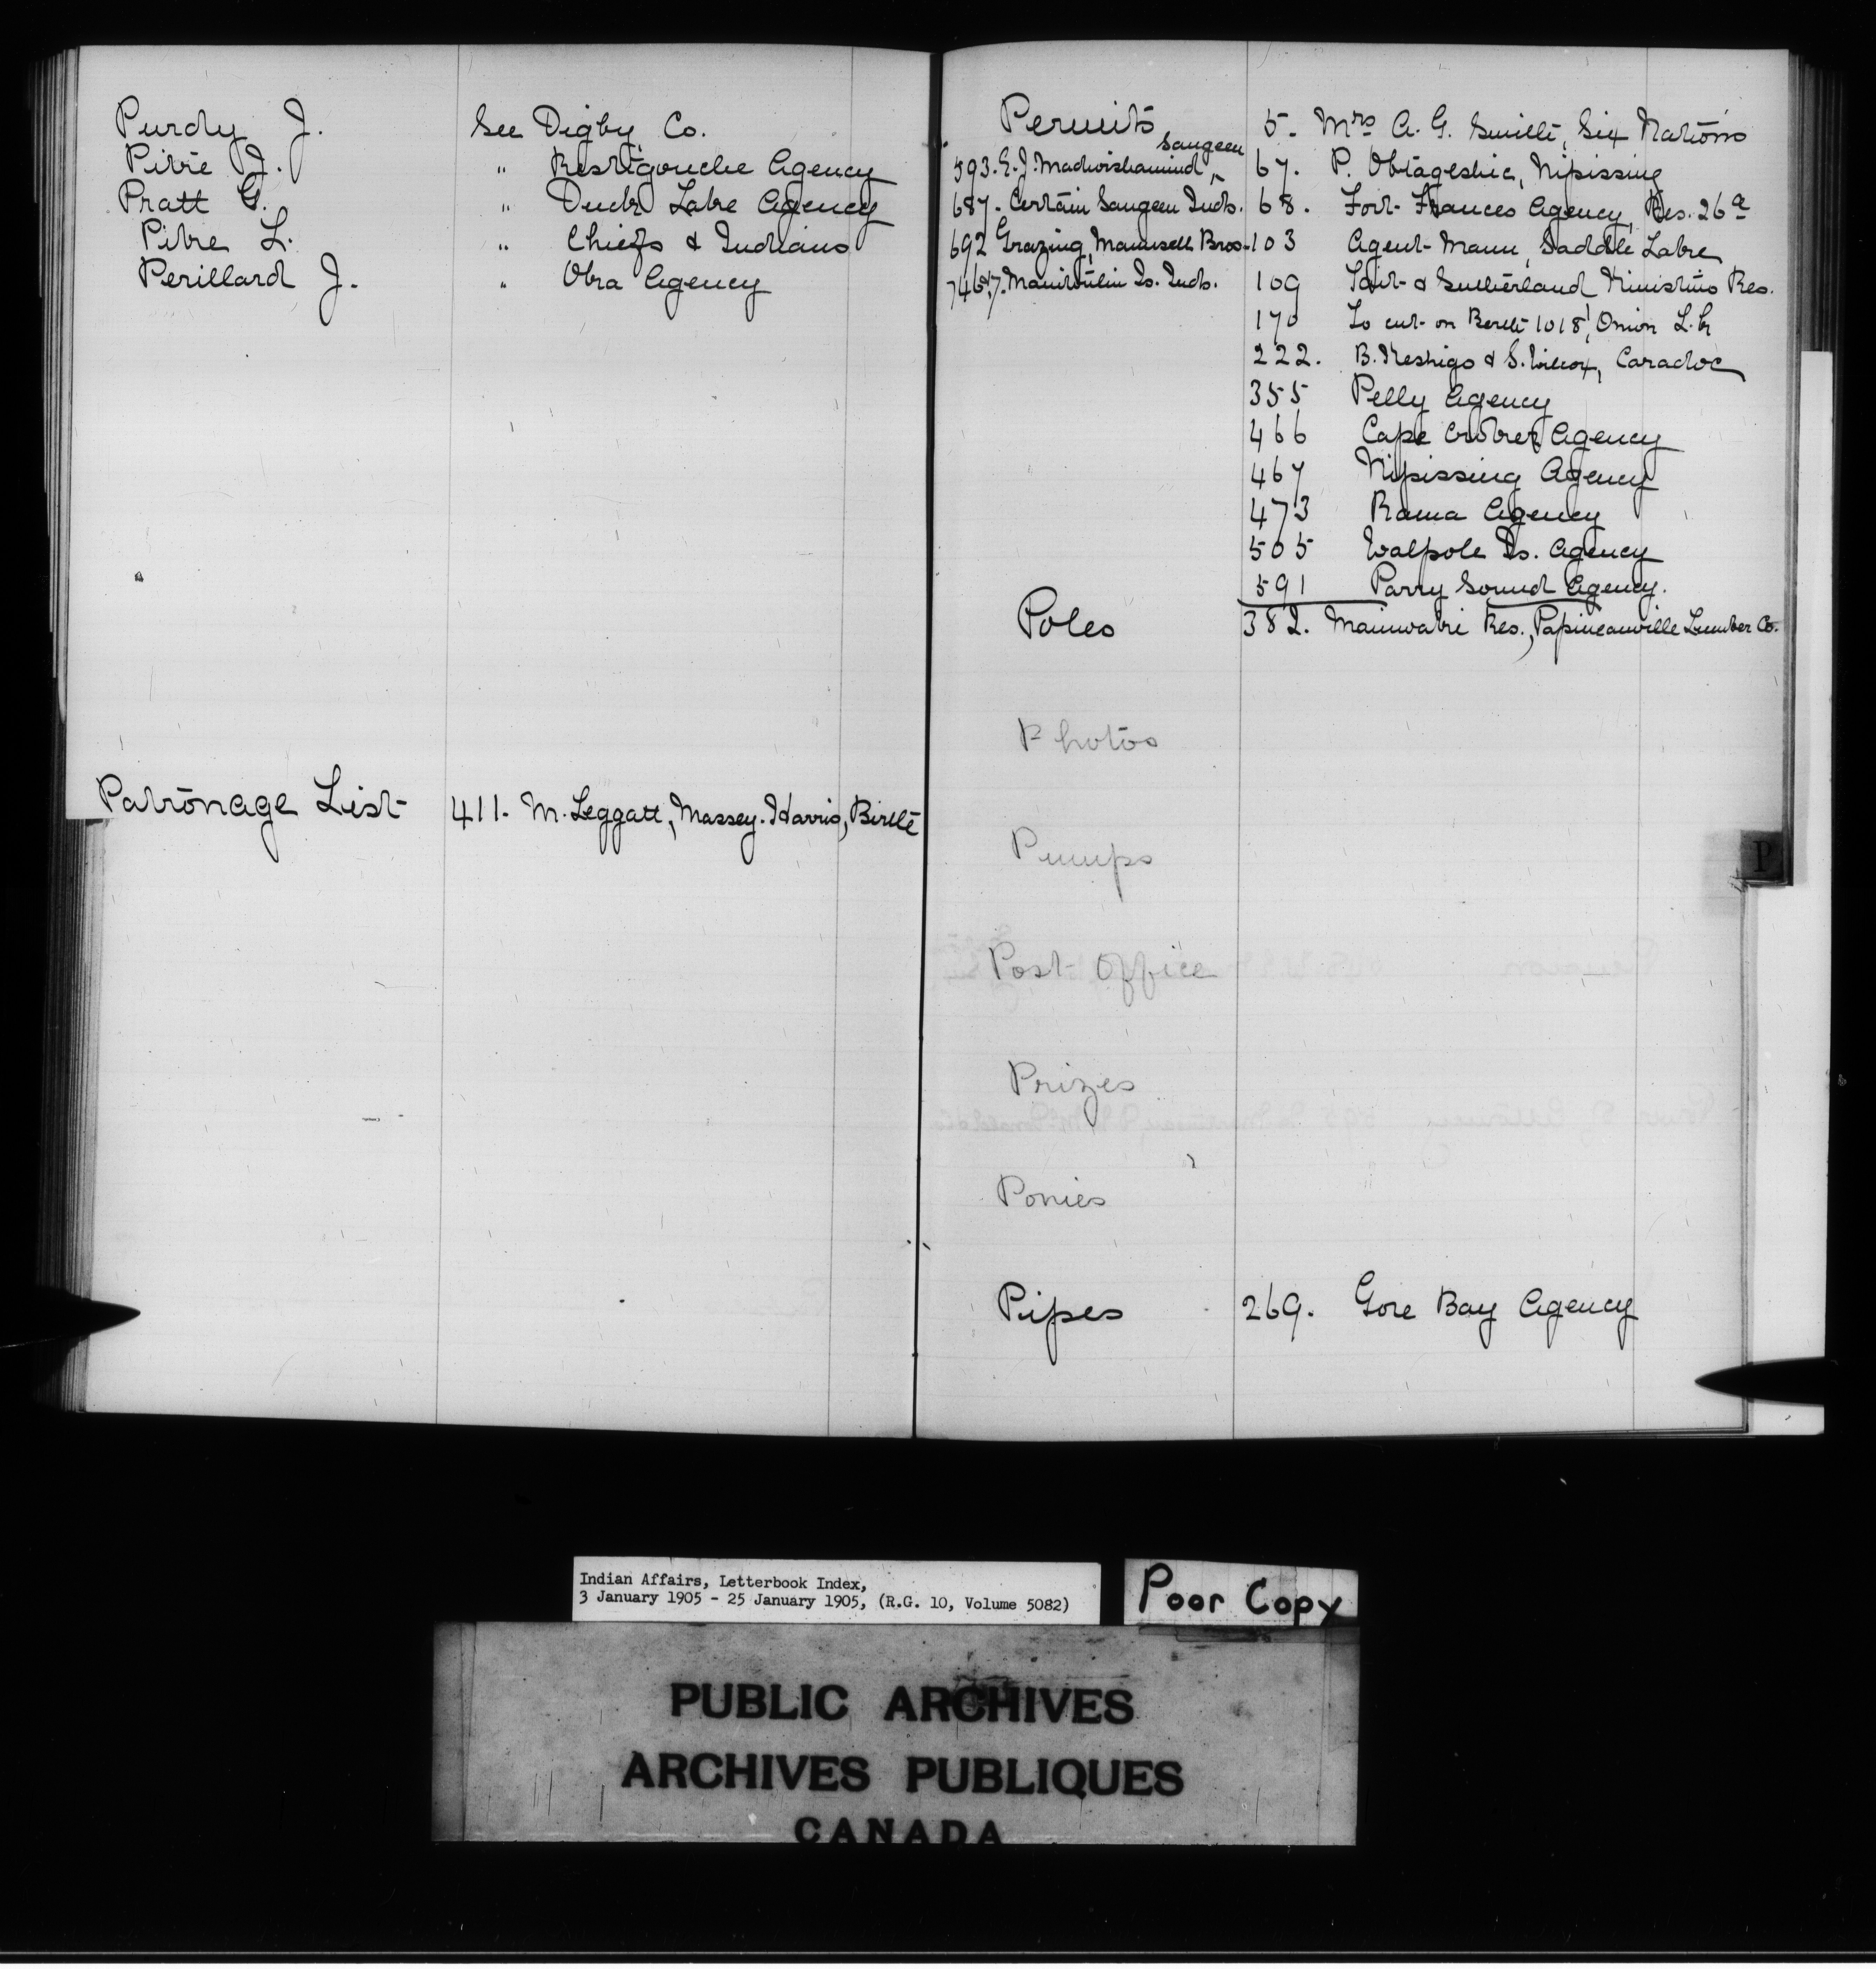 Purdy J. See Digby Co.
Pitre J. " Restigouche Agency
Pratt G. " Duck Lake Agency
Pitre L. " Chiefs & Indians
Perillard J. " Oka Agency
Patronage List 411. M. Leggatt, Massey-Harris, Birtle
Permits
Saugeen
593. E. J. Madwishemind,
687. Certain Saugeen Inds.
692 Grazing, Maunsell Bros.
746 & 7. Manitoulin Is. Inds.
5. Mrs A. G. Smith, Six Nations
67. P. Obtageshic, Nipissing
68. Fort Frances Agency, Res. 26a
103 Agent Mann, Saddle Lake
109 Tait & Sutherland Kinistino Res.
170 To cut on Berth 1018, Onion L.
222. B. Keshigo & S. Wilcox, Caradoc
355 Pelly Agency
466 Cape Croker Agency
467 Nipissing Agency
473 Rama Agency
505 Walpole Is. Agency
591 Parry Sound Agency.
Poles 382. Maniwaki Res., Papineauville Lumber Co.
Photos
Pumps
P
Post Office
Prizes
Ponies
Pipes 269. Gore Bay Agency
Indian Affairs, Letterbook Index,
3 January 1905 - 25 January 1905, (R.G. 10, Volume 5082)
Poor Copy
PUBLIC ARCHIVES
ARCHIVES PUBLIQUES
CANADA